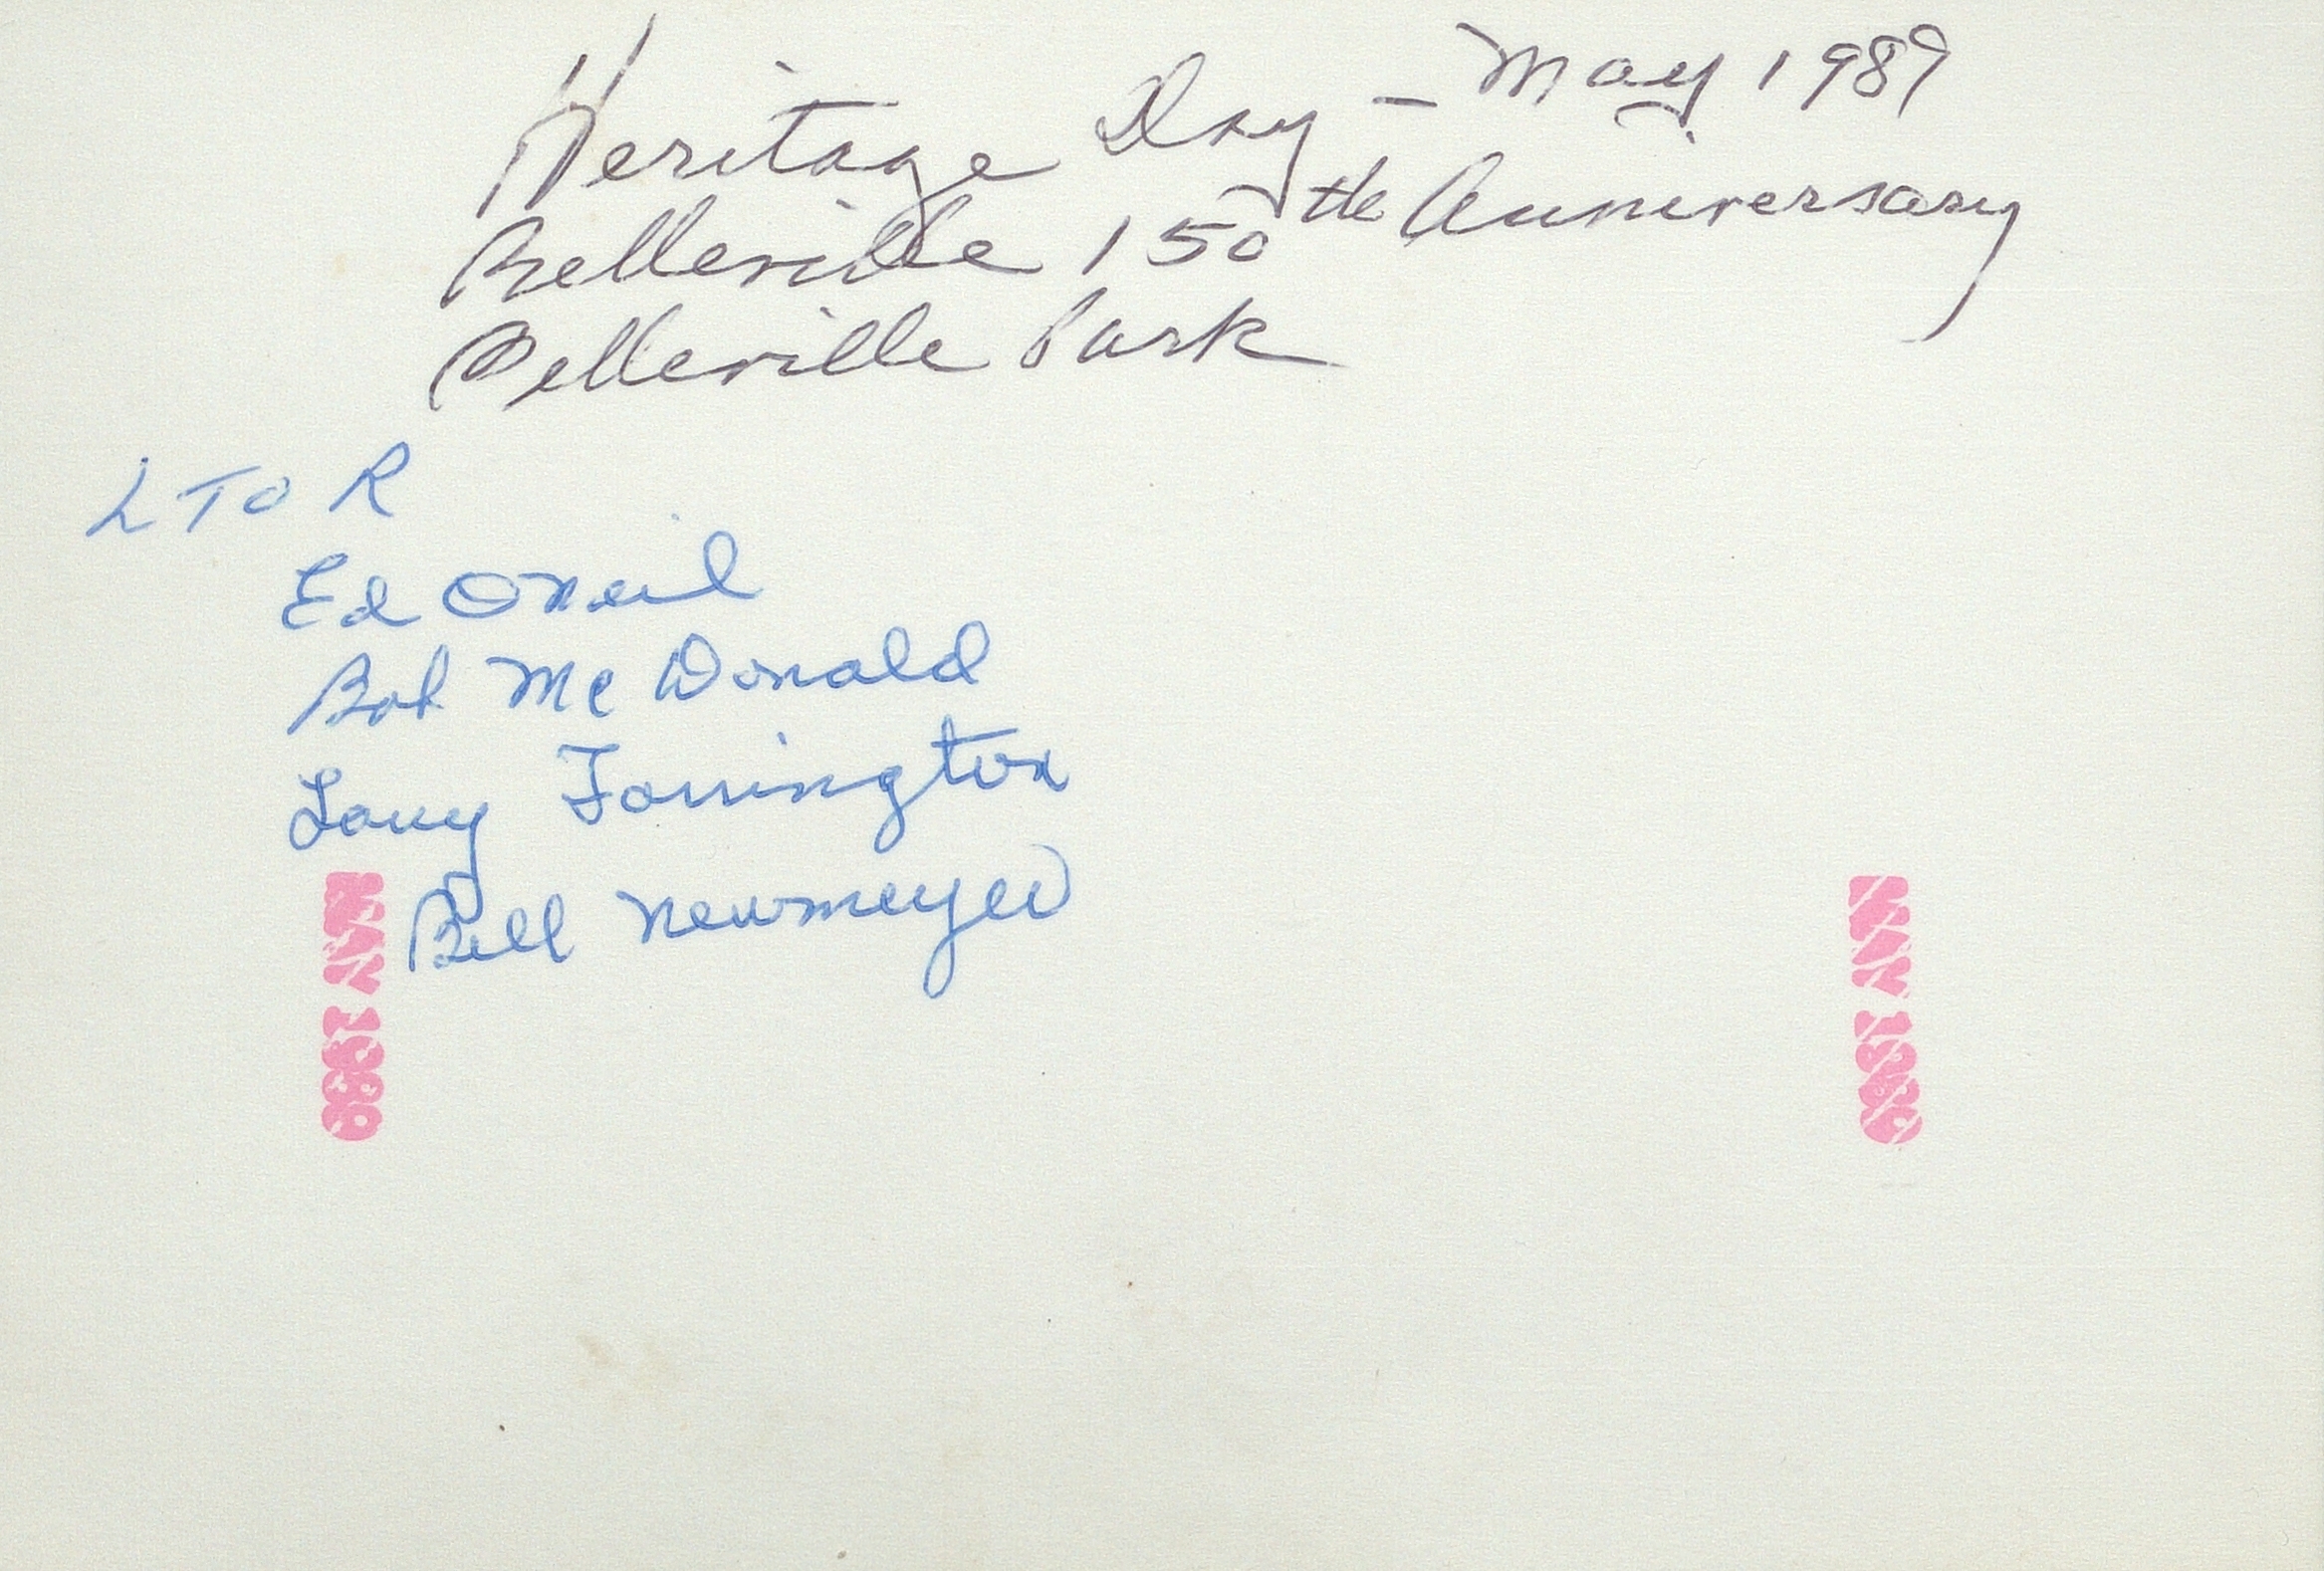 Heritage Day - May 1989
Belleville 150th Anniversary
Belleville Park
L TO R
Ed ONeil
Bob Mc Donald
Larry Farrington
Bill Newmeyer
MAY 1989
MAY 1989